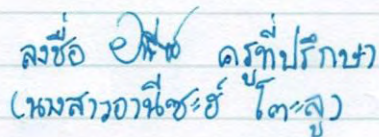 ลงชื่อ ครูที่ปรึกษา
(นางสาวอานีซะฮ์ โตะลู)